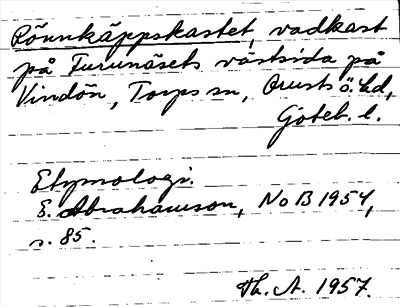 Rönnkäppskastet, vadkast
på Turunäsets västsida på
Vindön, Torps sn, Orusts ö. hd,
Göteb. l.
Etymologi.
E. Abrahamson, NoB 1954,
s. 85.
Th. A. 1957.